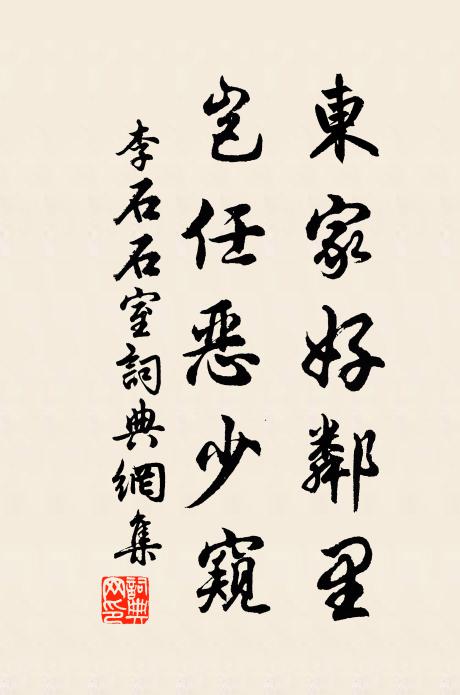 東家好鄰里
豈任惡少窺
李石石室詞典網集
詞典
网印